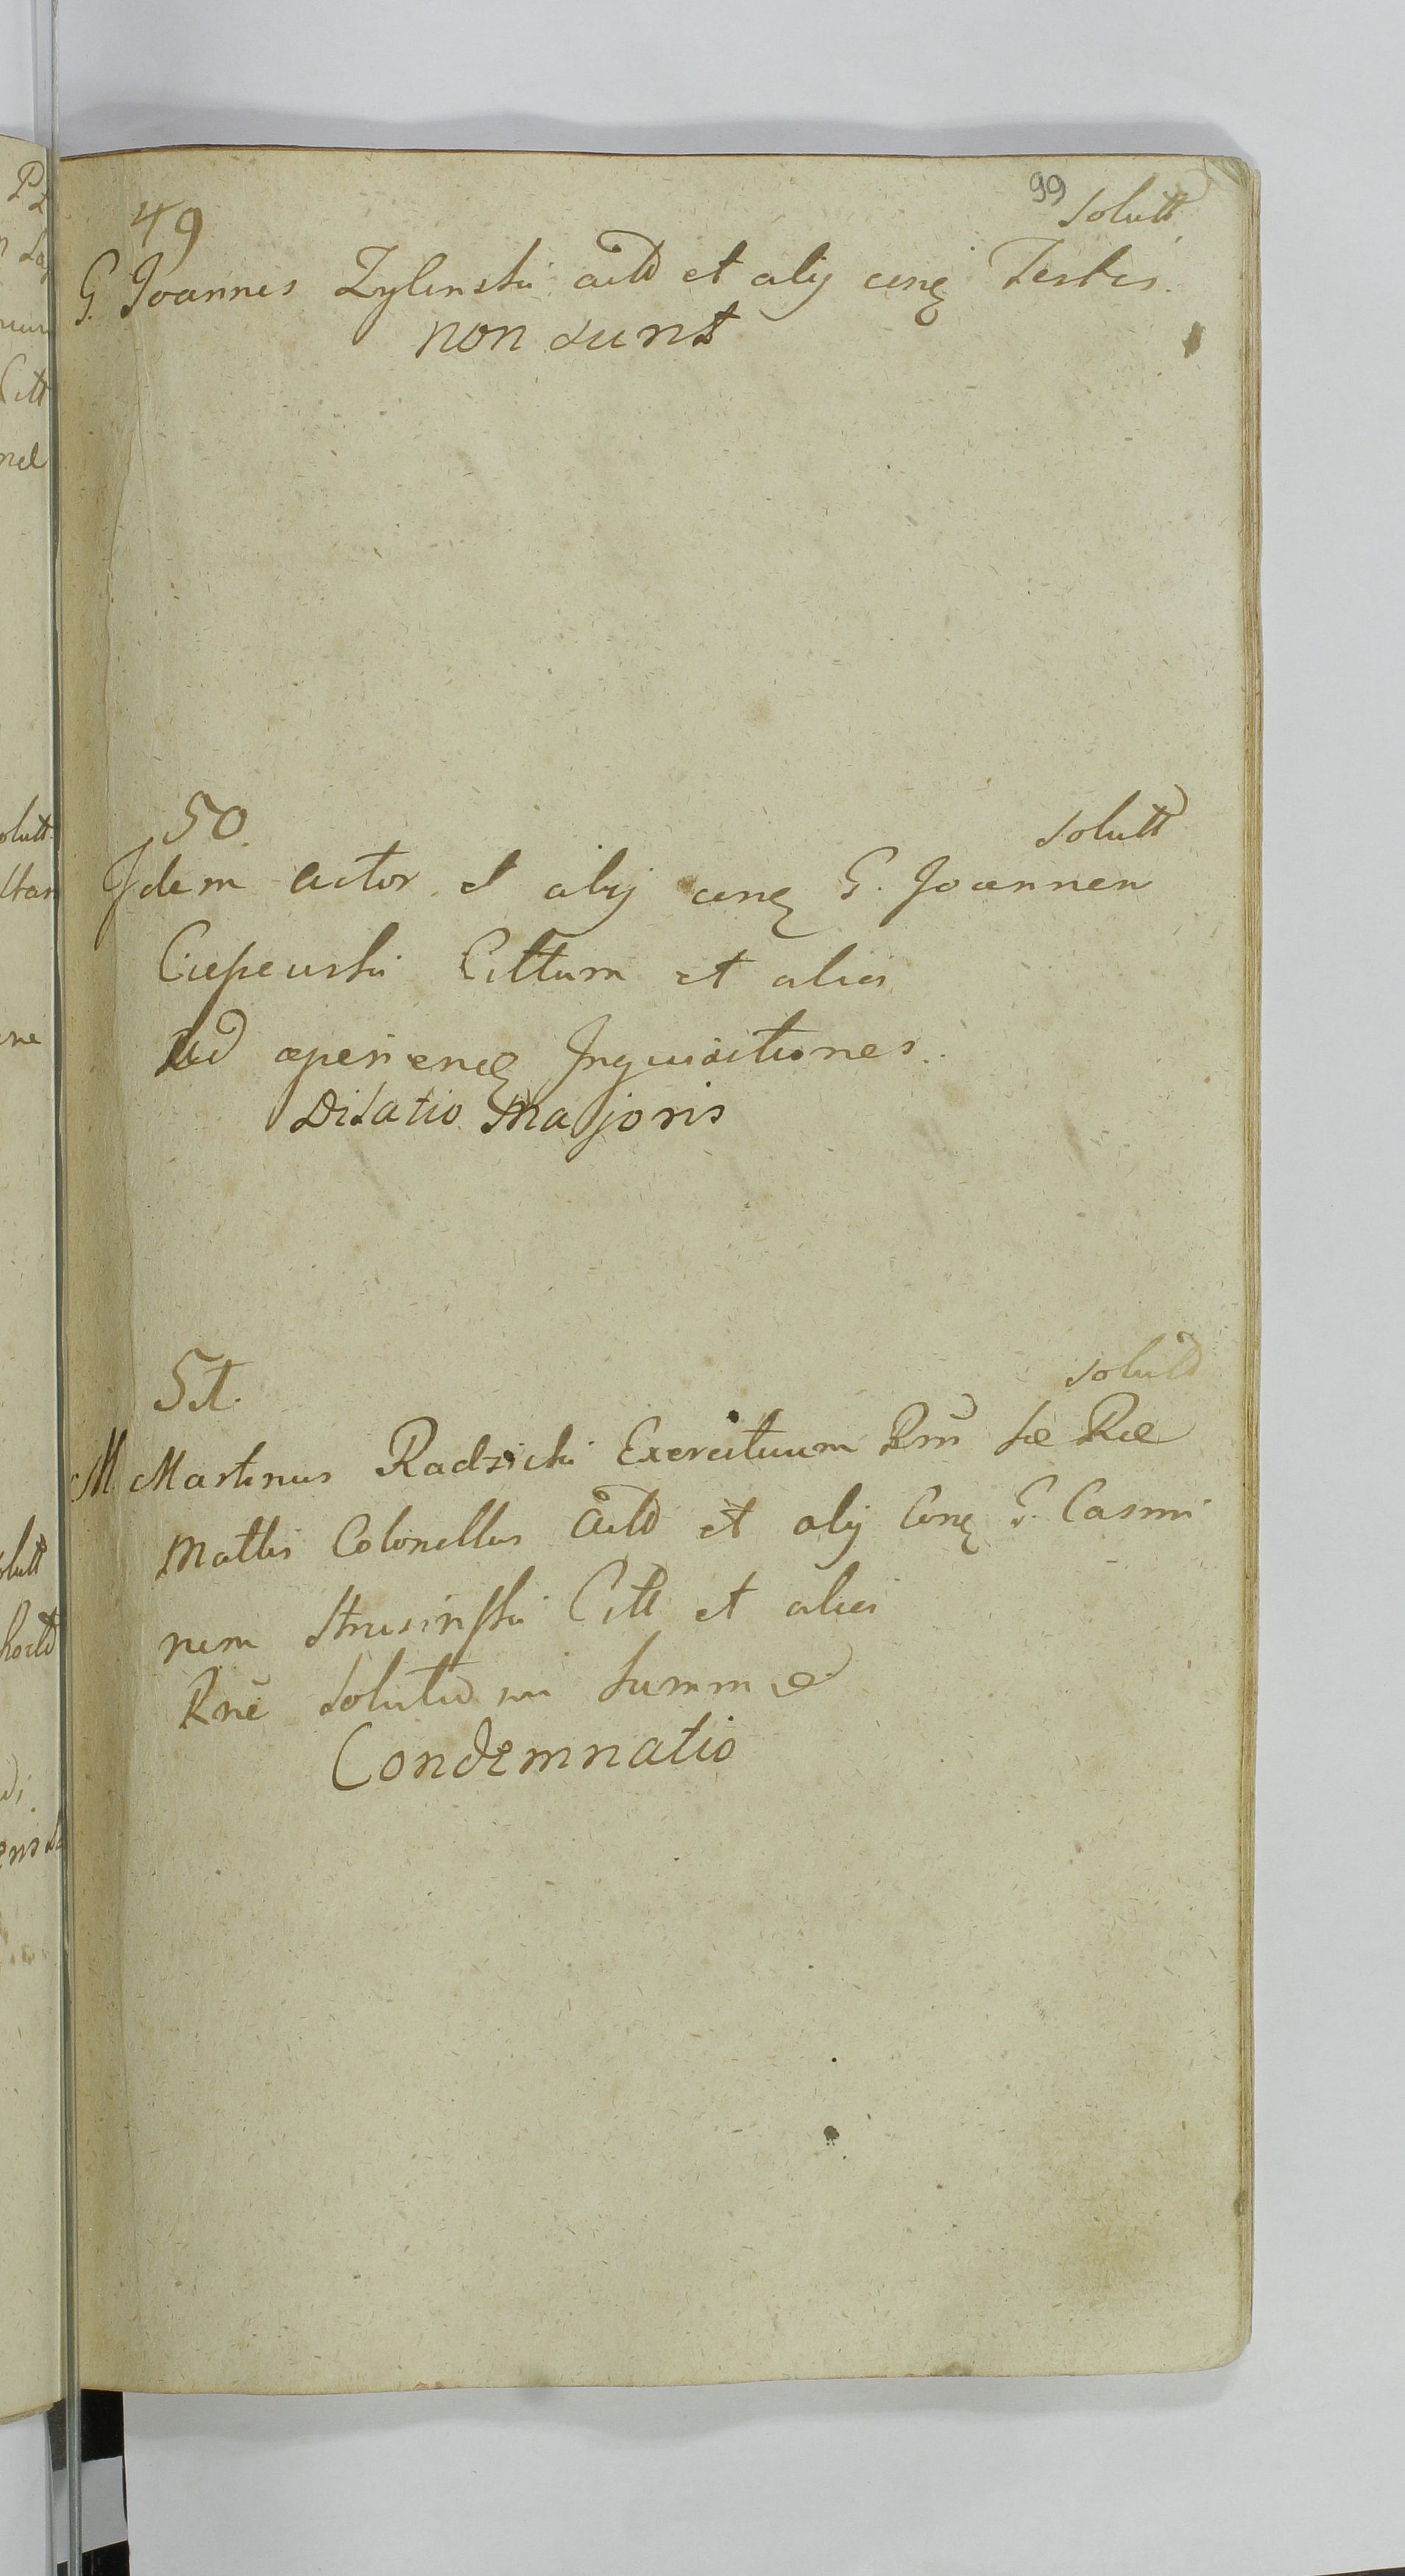 99
solutt
49
G. Joannes Zylinski actt et alij conq Testes.
non sunt
50.
solutt
Idem Actor et alij conq G. Joannem
Ciepeuski Cittum et alios
Ad aperienq Inquisitiones.
Dilatio Majoris
51.
solutt
M Martinus Radzicki Exercituum Rni
Mattis Colonellus Actt et alij Conq G. Casimi
rum Strusinski Citt et alios
Rne Solutionis Summae
Condemnatio